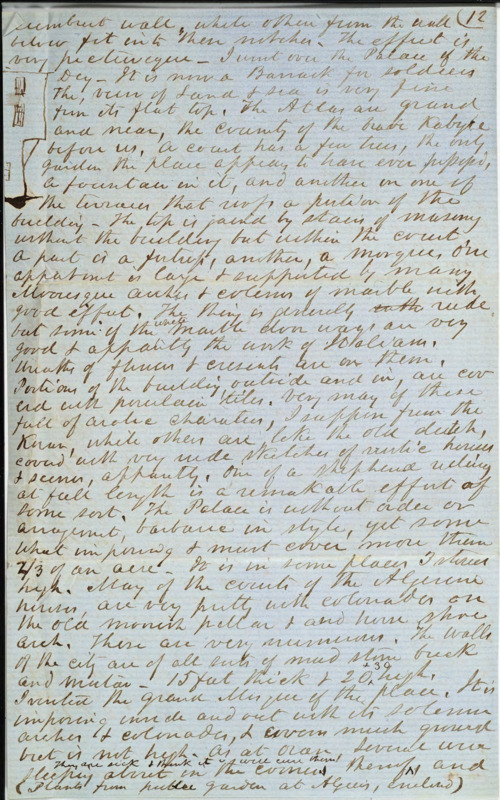 12
sembert wall, while others from the wall
below fit into their notches. The effect is
very picturesque - I went over the Palace of the
Dey - It is now a Barrack for soldiers
The view of Land & sea is very fine
from its flat top. The Atlas are grand
and near, the country of the brave Kabyle
before us, a court has a few trees, the only
garden the place appears to have ever possessed,
a fountain in it, and another on one of
the terraces that roofs a portion of the
building - The top is gained by stairs of masonry
without the building but within the court.
a part is a fortress, another, a mosque, One
appartment is large & supported by many
Moresque arches & colums of marble with
good effect. The thing is generally rude,
but some of the white marble door ways are very
good & apparently the work of Italians.
Wreaths of flowers & cresents are on them.
Portions of the building outside and in, are cov
ered with porcelain tiles. Very many of these
full of arabic characters, I suppose from the
Koran, while others are like the old dutch,
covered with very rude sketches of rustic houses
& scenes, apparently. One of a shepherd reclining
at full length is a remarkable effort of
some sort. The Palace is without order or
arrangement, barbaric in style, yet some
what imposing & must cover more than
2/3 of an acre - It is in some places 3 stories
high. Many of the courts of the Algerine
houses, are very pretty with colonades on
the old moorish pillar & and horse shoe
arch. These are very numerous. The walls
of the city are of all sorts of mud stone brick
and mortar - 15 feet thick & 20 & 30 high.
I visited the Grand Mosque of the place. It is
imposing inside and out with its solemn
arches & colonades, & covers much ground
but is not high - As at Oran several were
sleeping about in the corners thereof, and
They are sick & think it will cure them
(Plants from public garden at Algiers, enclosed)